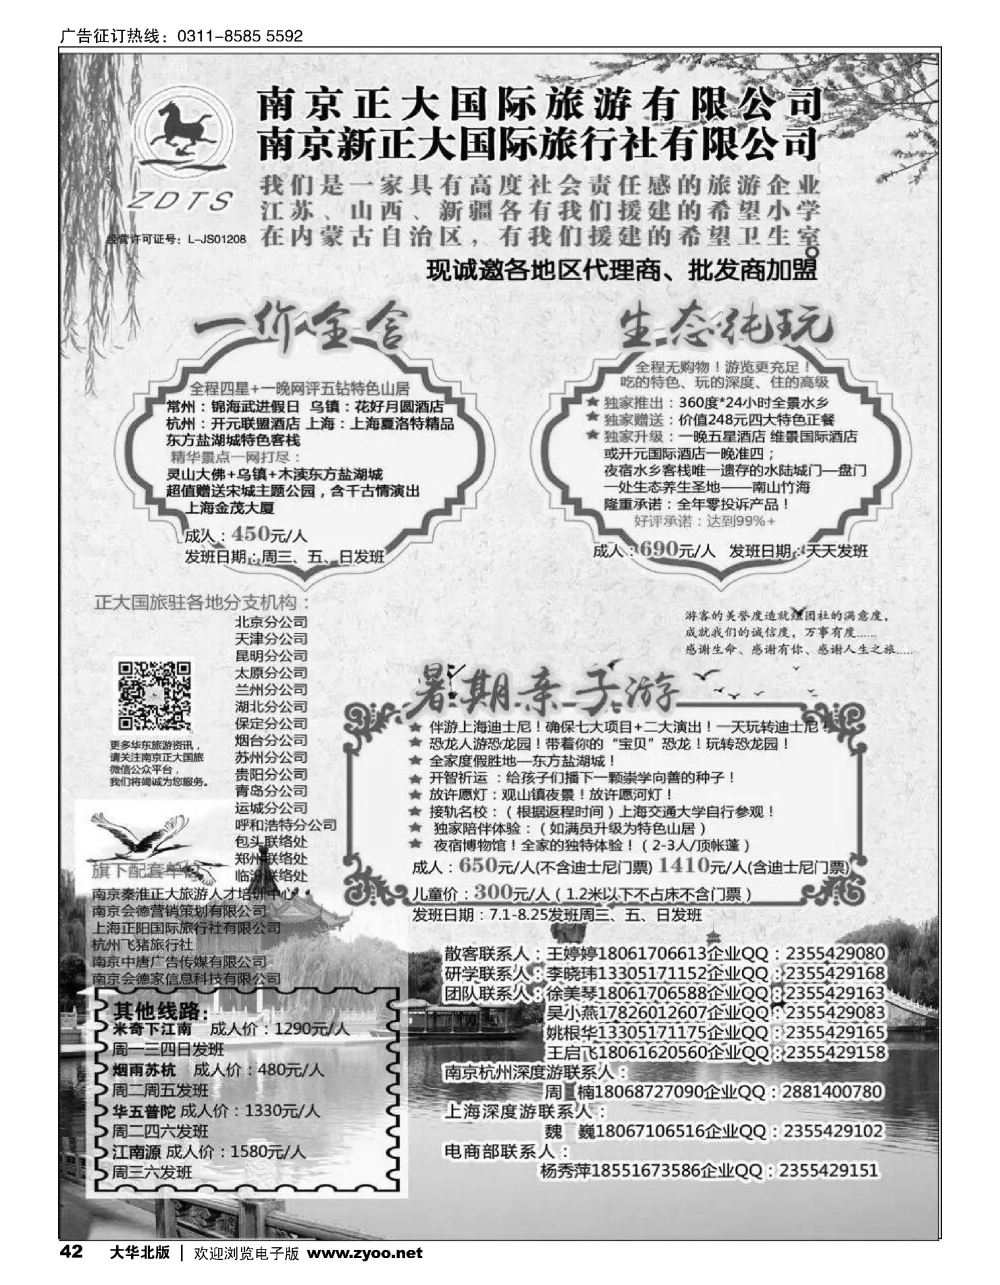 广告征订热线：0311-8585 5592
南京正大国际旅游有限公司
南京新正大国际旅行社有限公司
ZDTS
经营许可证号：L-JS01208
我们是一家具有高度社会责任感的旅游企业
江苏、山西、新疆各有我们援建的希望小学
在内蒙古自治区，有我们援建的希望卫生室。
现诚邀各地区代理商、批发商加盟
一价全含
全程四星+一晚网评五钻特色山居
常州：锦海武进假日 乌镇：花好月圆酒店
杭州：开元联盟酒店 上海：上海夏洛特精品
东方盐湖城特色客栈
精华景点一网打尽：
灵山大佛+乌镇+木渎东方盐湖城
超值赠送宋城主题公园，含千古情演出
上海金茂大厦
成人：450元/人
发班日期：周三、五、日发班
生态纯玩
全程无购物！游览更充足！
吃的特色、玩的深度、住的高级
★独家推出：360度*24小时全景水乡
★独家赠送：价值248元四大特色正餐
★独家升级：一晚五星酒店 维景国际酒店
或开元国际酒店一晚准四；
夜宿水乡客栈唯一遗存的水陆城门—盘门
一处生态养生圣地——南山竹海
隆重承诺：全年零投诉产品！
好评承诺：达到99%+
成人：690元/人 发班日期：天天发班
正大国旅驻各地分支机构：
北京分公司
天津分公司
昆明分公司
太原分公司
兰州分公司
湖北分公司
保定分公司
烟台分公司
苏州分公司
贵阳分公司
青岛分公司
运城分公司
呼和浩特分公司
包头联络处
郑州联络处
临汾联络处
更多华东旅游资讯，
请关注南京正大国旅
微信公众平台，
我们将竭诚为您服务。
游客的美誉度造就组团社的满意度，
成就我们的诚信度，万事有度......
感谢生命、感谢有你、感谢人生之旅.....
暑期亲子游
★ 伴游上海迪士尼！确保七大项目+二大演出！一天玩转迪士尼！
★ 恐龙人游恐龙园！带着你的“宝贝”恐龙！玩转恐龙园！
★ 全家度假胜地—东方盐湖城！
★ 开智祈运：给孩子们播下一颗崇学向善的种子！
★ 放许愿灯：观山镇夜景！放许愿河灯！
★ 接轨名校：（根据返程时间）上海交通大学自行参观！
★ 独家陪伴体验：（如满员升级为特色山居）
★ 夜宿博物馆！全家的独特体验！（2-3人/顶帐蓬）
成人：650元/人(不含迪士尼门票) 1410元/人(含迪士尼门票)
儿童价：300元/人（1.2米以下不占床不含门票）
发班日期：7.1-8.25发班周三、五、日发班
旗下配套单位
南京秦淮正大旅游人才培训中心
南京会德营销策划有限公司
上海正阳国际旅行社有限公司
杭州飞猪旅行社
南京中唐广告传媒有限公司
南京会德家信息科技有限公司
其他线路：
米奇下江南 成人价：1290元/人
周一三四日发班
烟雨苏杭 成人价：480元/人
周二周五发班
华五普陀 成人价：1330元/人
周二四六发班
江南源 成人价：1580元/人
周三六发班
散客联系人：王婷婷18061706613企业QQ：2355429080
研学联系人：李晓玮13305171152企业QQ：2355429168
团队联系人：徐美琴18061706588企业QQ：2355429163
吴小燕17826012607企业QQ：2355429083
姚根华13305171175企业QQ：2355429165
王启飞18061620560企业QQ：2355429158
南京杭州深度游联系人：
周 楠18068727090企业QQ：2881400780
上海深度游联系人：
魏 巍18067106516企业QQ：2355429102
电商部联系人：
杨秀萍18551673586企业QQ：2355429151
42 大华北版 | 欢迎浏览电子版 www.zyoo.net